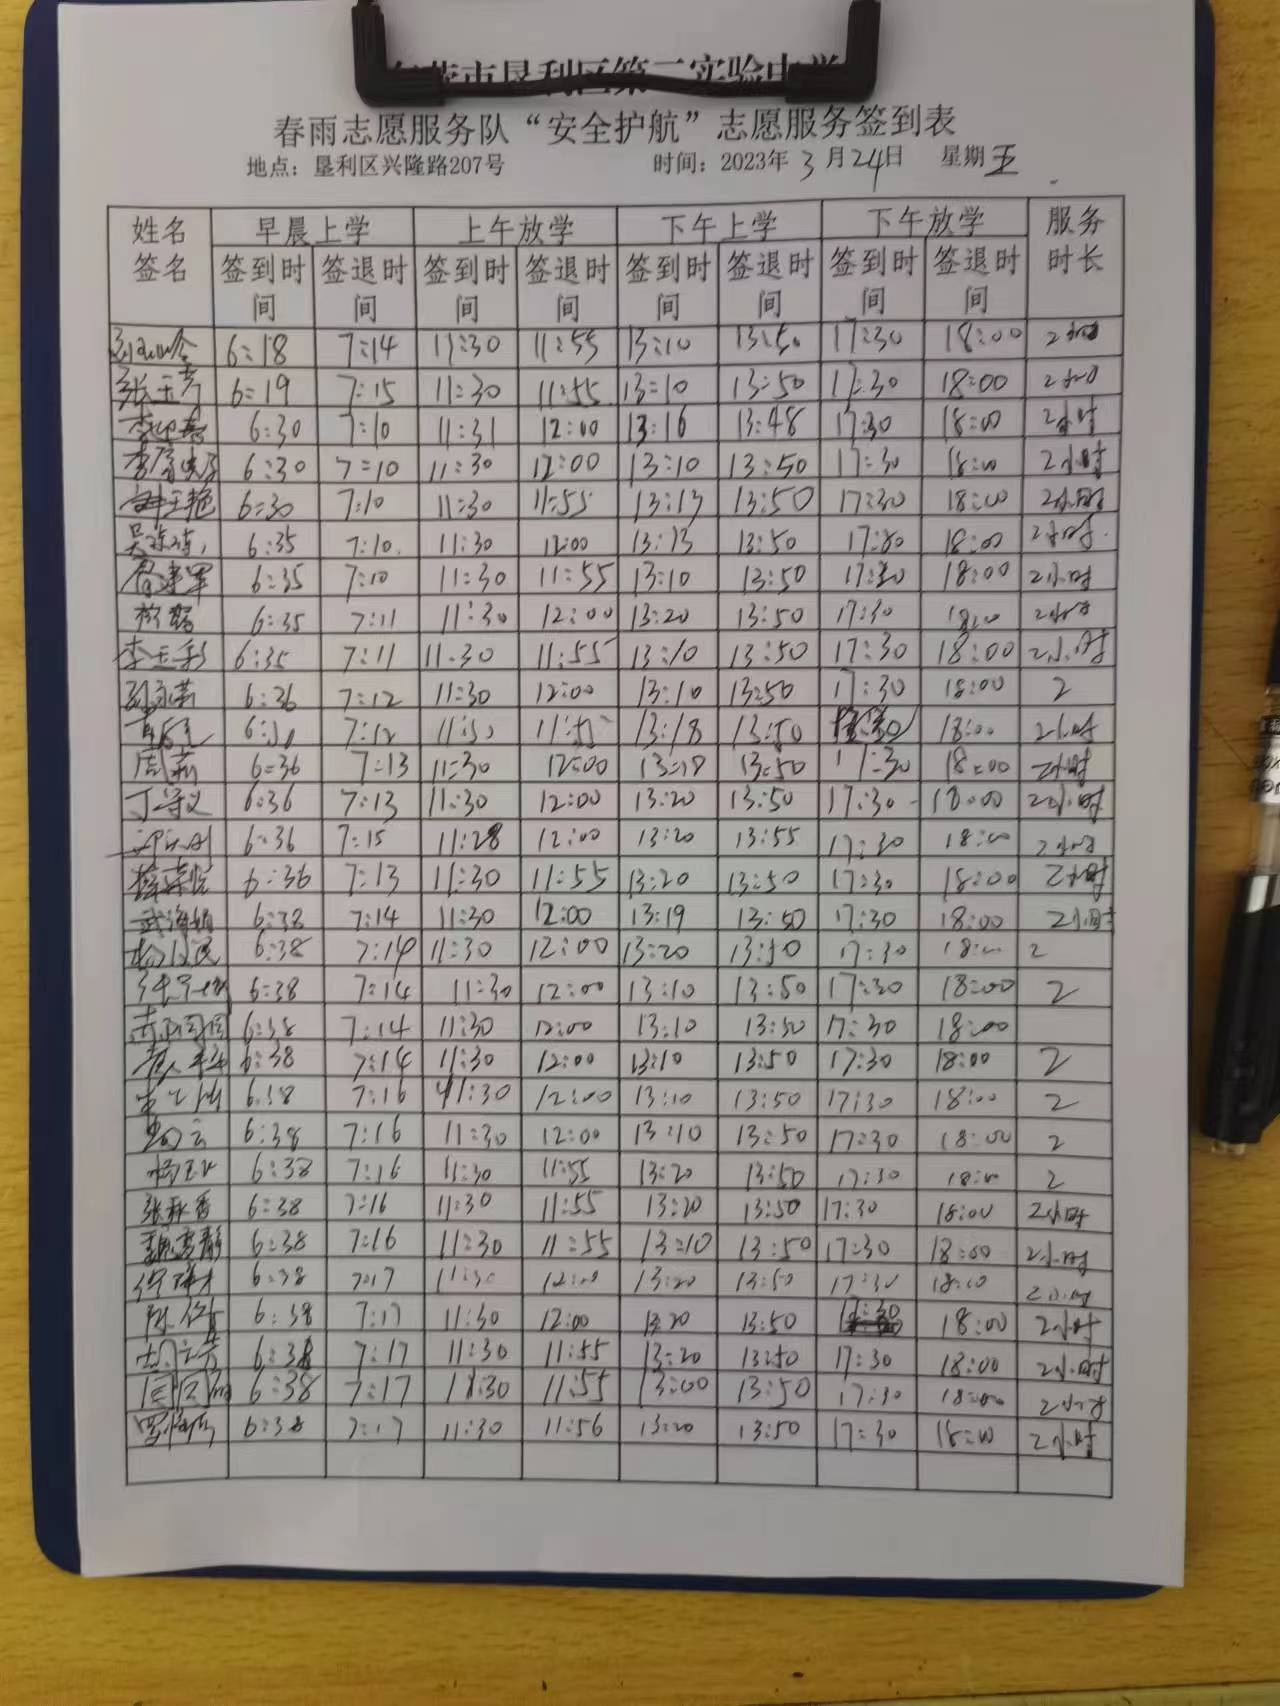 市垦利区第二实验中学
春雨志愿服务队“安全护航”志愿服务签到表
地点：垦利区兴隆路207号 时间：2023年 3 月 24 日 星期 五
姓名签名 早晨上学 上午放学 下午上学 下午放学 服务时长
签到时间 签退时间 签到时间 签退时间 签到时间 签退时间 签到时间 签退时间
6:18 7:14 11:30 11:55 13:10 13:50 17:30 18:00 2小时
6:19 7:15 11:30 11:55 13:10 13:50 17:30 18:00 2小时
6:30 7:10 11:31 12:00 13:16 13:48 17:30 18:00 2小时
6:30 7:10 11:30 12:00 13:10 13:50 17:30 18:00 2小时
6:30 7:10 11:30 11:55 13:13 13:50 17:30 18:00 2小时
6:35 7:10 11:30 12:00 13:13 13:50 17:30 18:00 2小时
6:35 7:10 11:30 11:55 13:10 13:50 17:30 18:00 2小时
6:35 7:11 11:30 12:00 13:20 13:50 17:30 18:00 2小时
李玉彩 6:35 7:11 11:30 11:55 13:10 13:50 17:30 18:00 2小时
6:36 7:12 11:30 12:00 13:10 13:50 17:30 18:00 2
7:12 13:18 13:50 18:00 2小时
6:36 7:13 11:30 12:00 13:18 13:50 17:30 18:00 2小时
丁守义 6:36 7:13 11:30 12:00 13:20 13:50 17:30 18:00 2小时
6:36 7:15 11:28 12:00 13:20 13:55 17:30 18:00 2小时
6:36 7:13 11:30 11:55 13:20 13:50 17:30 18:00 2小时
武海娟 6:38 7:14 11:30 12:00 13:19 13:50 17:30 18:00 2小时
6:38 7:14 11:30 12:00 13:20 13:50 17:30 18:00 2
6:38 7:14 11:30 12:00 13:10 13:50 17:30 18:00 2
6:38 7:14 11:30 12:00 13:10 13:50 17:30 18:00
6:38 7:14 11:30 12:00 13:10 13:50 17:30 18:00 2
6:38 7:16 11:30 12:00 13:10 13:50 17:30 18:00 2
6:38 7:16 11:30 12:00 13:10 13:50 17:30 18:00 2
6:38 7:16 11:30 11:55 13:20 13:50 17:30 18:00 2
张秋香 6:38 7:16 11:30 11:55 13:20 13:50 17:30 18:00 2小时
魏雪静 6:38 7:16 11:30 11:55 13:10 13:50 17:30 18:00 2小时
6:38 7:17 11:30 12:00 13:20 13:50 17:30 18:00 2小时
6:38 7:17 11:30 12:00 13:20 13:50 17:30 18:00 2小时
6:38 7:17 11:30 11:55 13:20 13:50 17:30 18:00 2小时
6:38 7:17 11:30 11:55 13:00 13:50 17:30 18:00 2小时
6:38 7:17 11:30 11:56 13:20 13:50 17:30 18:00 2小时